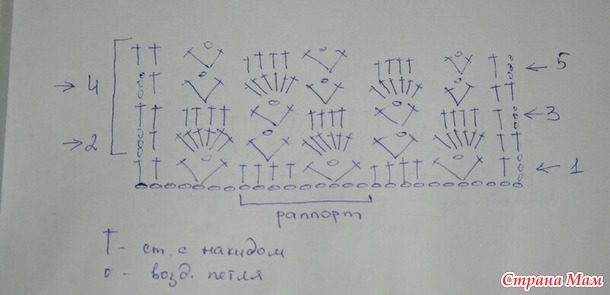 5
4
3
2
1
раппорт
† - ст. с накидом
о - возд. петля
Страна Мам